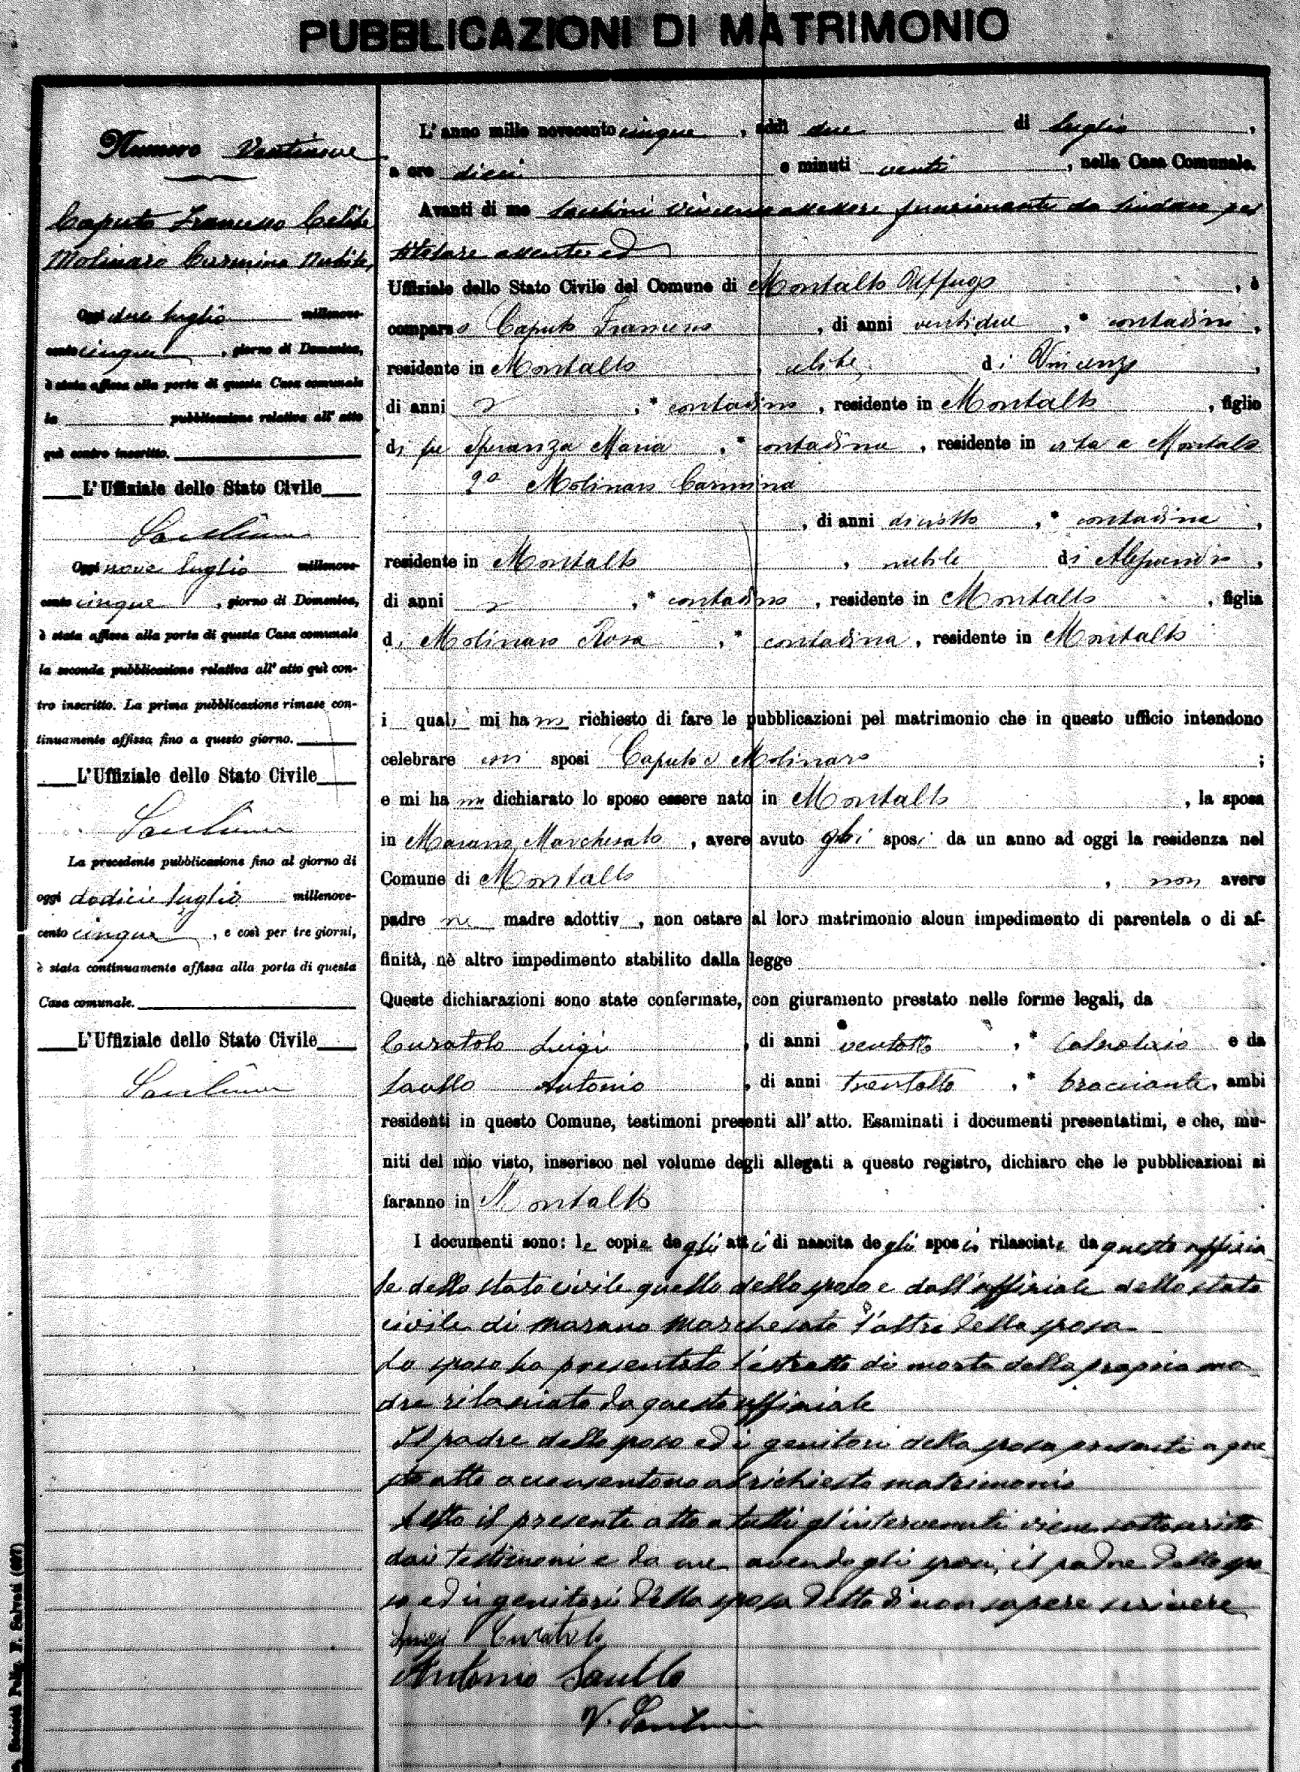 PUBBLICAZIONI DI MATRIMONIO
Numero Ventinove
Caputo Francesco Celibe
Molinaro Carmina Nubile
Oggi due luglio millenove-
cento cinque, giorno di Domenica,
è stata affissa alla porta di questa Casa comunale
la pubblicazione relativa all' atto
quì contro inscritto.
L'Uffiziale dello Stato Civile
Oggi nove luglio millenove-
cento cinque, giorno di Domenica,
è stata affissa alla porta di questa Casa comunale
la seconda pubblicazione relativa all' atto quì con-
tro inscritto. La prima pubblicazione rimase con-
tinuamente affissa fino a questo giorno.
L'Uffiziale dello Stato Civile
La precedente pubblicazione fino al giorno di
oggi dodici luglio millenove-
cento cinque, e così per tre giorni,
è stata continuamente affissa alla porta di questa
Casa comunale.
L'Uffiziale dello Stato Civile
L' anno mille novecento cinque, addì due di luglio,
a ore dieci e minuti venti, nella Casa Comunale.
Avanti di me assessore funzionante da Sindaco pel
titolare assente ed
Uffiziale dello Stato Civile del Comune di Montalto Uffugo, è
comparso Caputo Francesco, di anni ventidue, * contadino,
residente in Montalto, celibe, di Vincenzo,
di anni, * contadino, residente in Montalto, figlio
di fu Speranza Maria, * contadina, residente in vita a Montalto
2º Molinaro Carmina
, di anni diciotto, * contadina,
residente in Montalto, nubile di
di anni, * contadino, residente in Montalto, figlia
di Molinaro Rosa, * contadina, residente in Montalto
i quali mi hanno richiesto di fare le pubblicazioni pel matrimonio che in questo ufficio intendono
celebrare essi sposi Caputo e Molinaro;
e mi hanno dichiarato lo sposo essere nato in Montalto, la sposa
in Marano Marchesato, avere avuto gli sposi da un anno ad oggi la residenza nel
Comune di Montalto, non avere
padre ne madre adottiv, non ostare al loro matrimonio alcun impedimento di parentela o di af-
finità, nè altro impedimento stabilito dalla legge.
Queste dichiarazioni sono state confermate, con giuramento prestato nelle forme legali, da
Curatolo Luigi, di anni ventotto, * Calzolaio e da
Saullo Antonio, di anni trentotto, * bracciante, ambi
residenti in questo Comune, testimoni presenti all' atto. Esaminati i documenti presentatimi, e che, mu-
niti del mio visto, inserisco nel volume degli allegati a questo registro, dichiaro che le pubblicazioni si
faranno in Montalto.
I documenti sono: le copie degli atti di nascita degli sposi rilasciate da questo uffizia
le dello stato civile quello dello sposo e dall'uffiziale dello stato
civile di Marano Marchesato l'altro della sposa.
Lo sposo ha presentato l'estratto di morte della propria ma
dre rilasciato da questo uffiziale
Il padre dello sposo ed i genitori della sposa presenti a que
sto atto acconsentono al richiesto matrimonio
Letto il presente atto a tutti gl'intervenuti viene sottoscritto
dai testimoni e da me avendo gli sposi, il padre dello spo
so ed i genitori della sposa detto di non sapere scrivere
Luigi Curatolo
Antonio Saullo